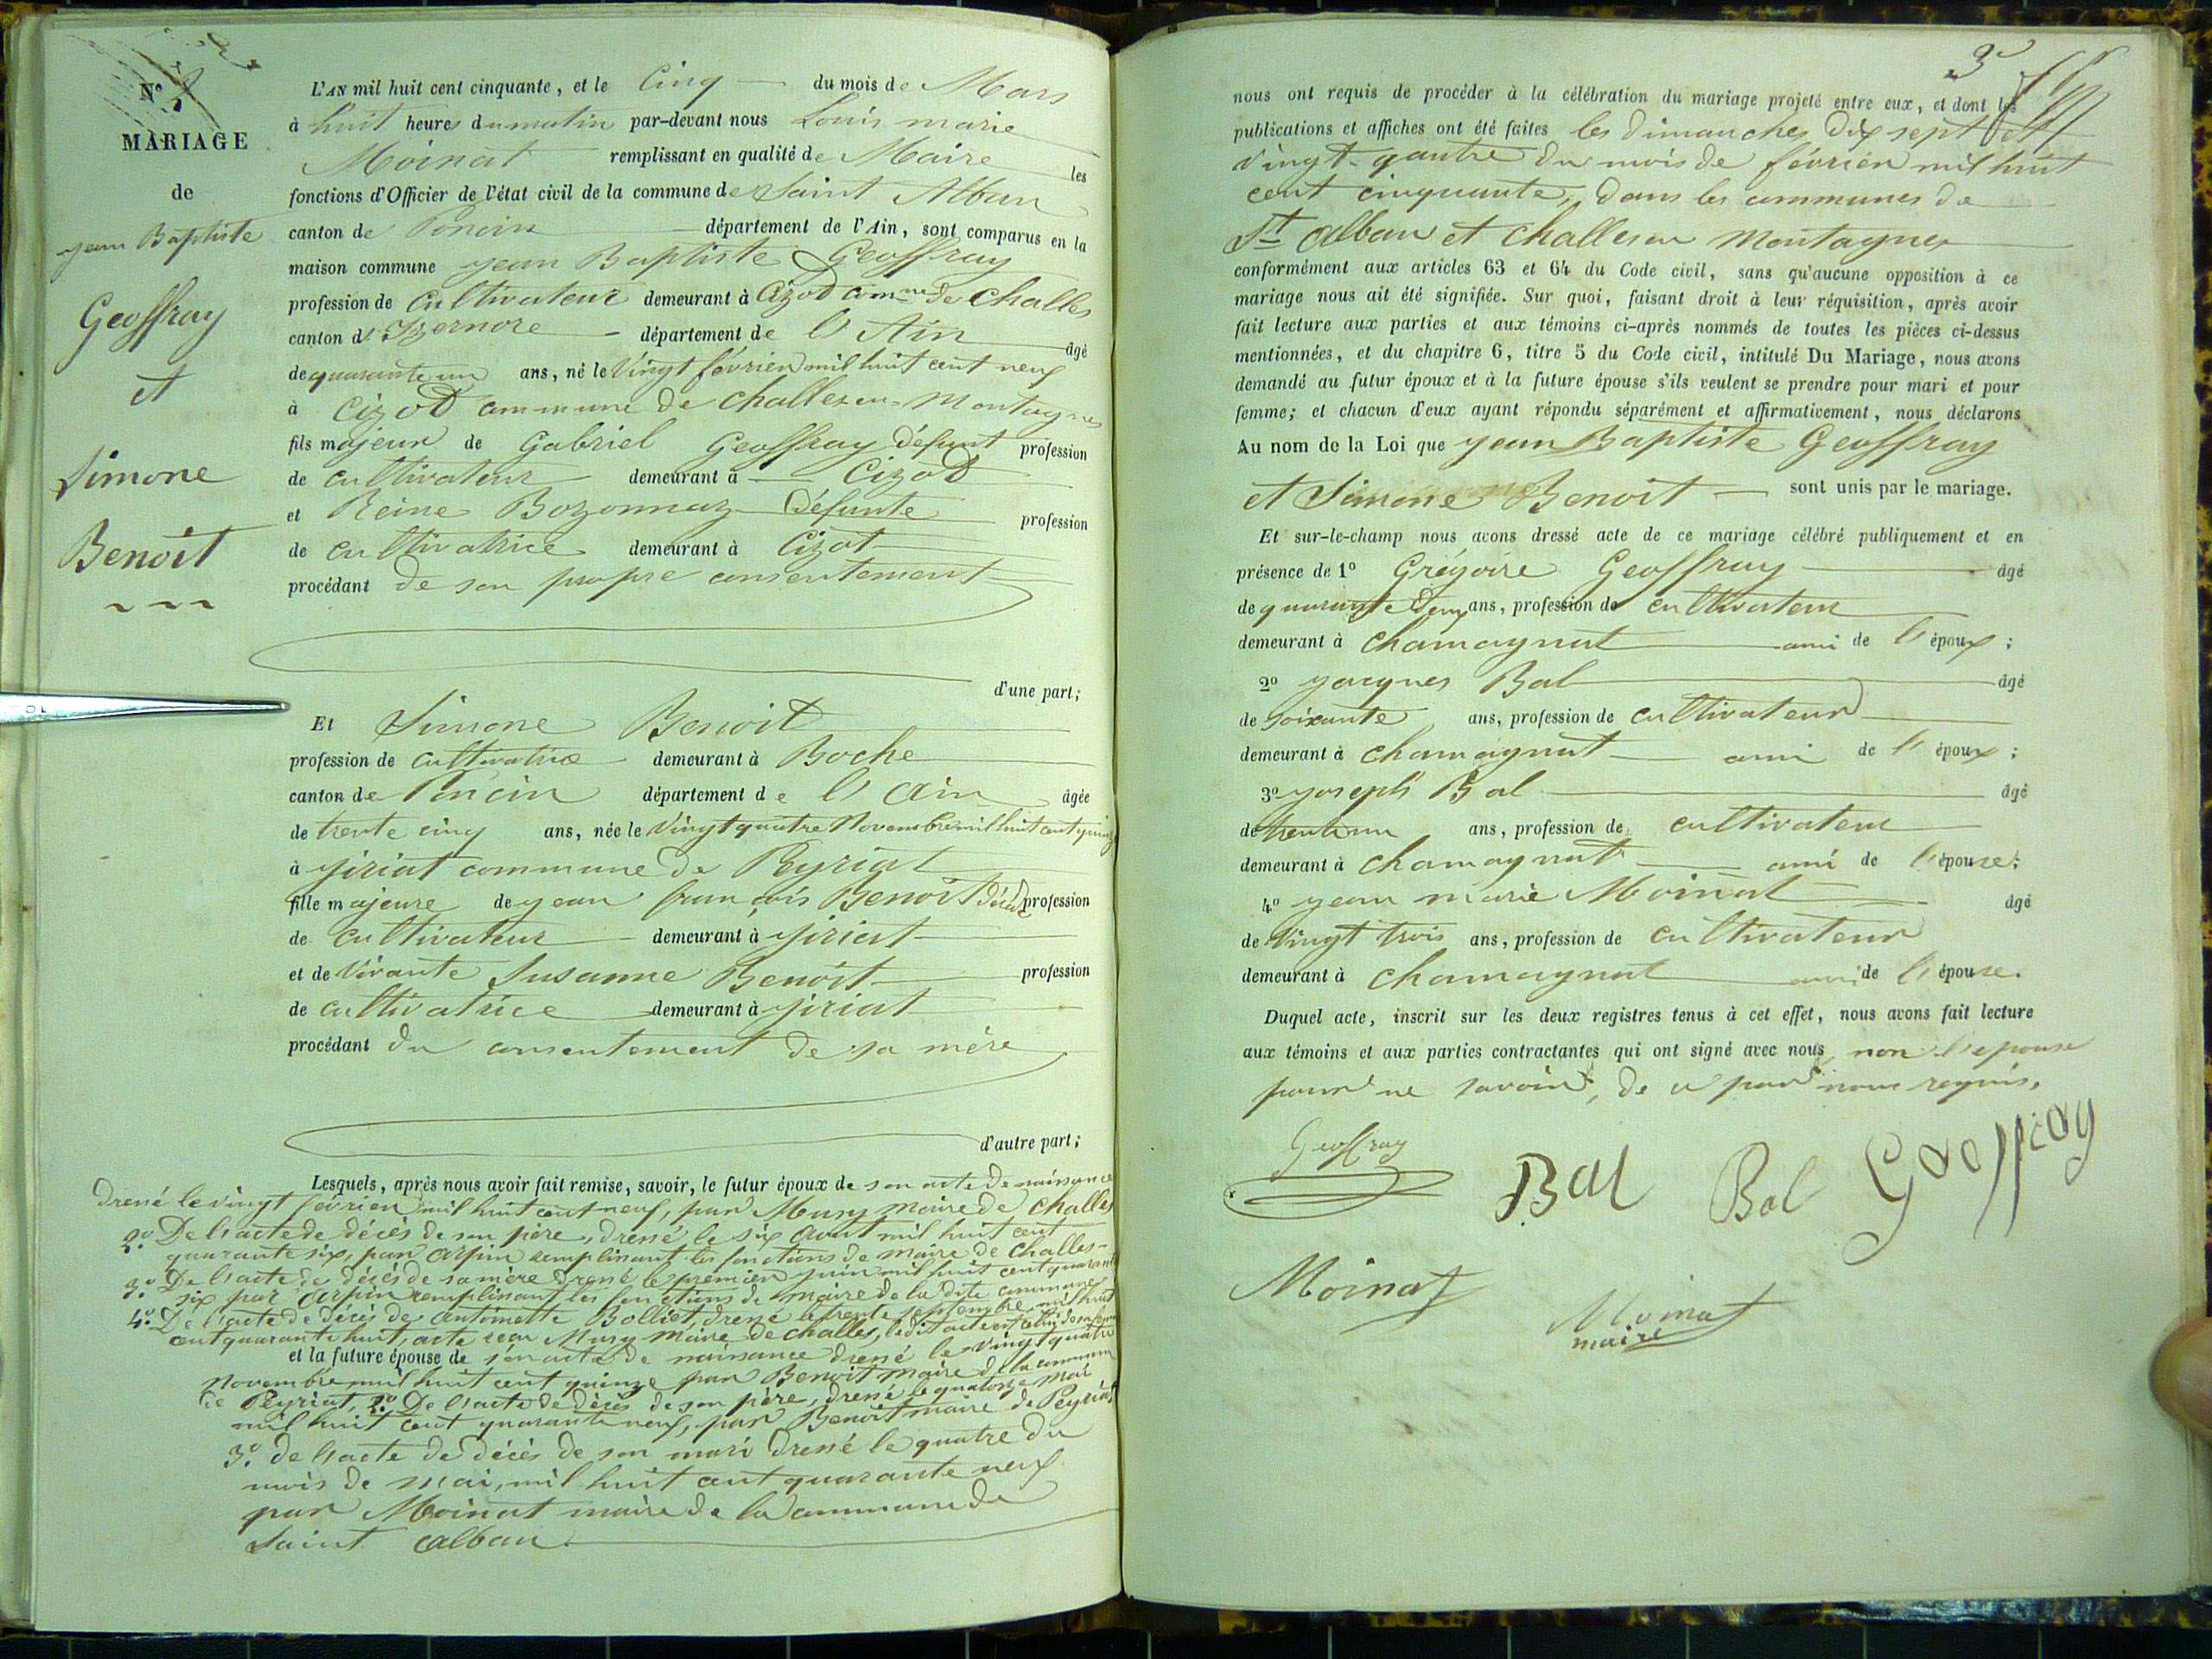 N°
MARIAGE
de
Jean Baptiste
Geoffray
et
Simone
Benoit
L'AN mil huit cent cinquante, et le Cinq du mois de Mars
à huit heures du matin par-devant nous Louis marie
Moinat remplissant en qualité de Maire les
fonctions d'Officier de l'état civil de la commune de Saint Alban
canton de Poncin département de l'Ain, sont comparus en la
maison commune jean Baptiste Geoffray
profession de cultivateur demeurant à Cizod comne de Challes
canton d'Izernore département de l'Ain âgé
de quarante un ans, né le vingt février mil huit cent neuf
à Cizod commune de challes en Montagnes
fils majeur de Gabriel Geoffray défunt profession
de cultivateur demeurant à Cizod
et Reine Bozonnaz défunte profession
de cultivatrice demeurant à Cizot
procédant de son propre consentement
d'une part;
Et Simone Benoit
profession de cultivatrice demeurant à Boche
canton de Poncin département de l'Ain âgée
de trente cinq ans, née le vingt quatre Novembre mil huit cent quinze
à Giriat commune de Peyriat
fille majeure de jean françois Benoit profession
de cultivateur demeurant à Giriat
et de vivante Susanne Benoit profession
de cultivatrice demeurant à Giriat
procédant du consentement de sa mère
d'autre part;
Lesquels, après nous avoir fait remise, savoir, le futur époux de son acte de naissance
dressé le vingt février mil huit cent neuf, par Musy maire de challes
2° De l'acte de décès de son père, dressé le six aout mil huit cent
quarante six, par Arpin remplissant les fonctions de maire de Challes
3° De l'acte de décès de sa mère dressé le premier juin mil huit cent quarante
six par Arpin remplissant les fonctions de maire de la dite commune
4° De l'acte de décès de antoinette Bolliet, dressé le trente septembre mil huit
cent quarante huit, acte reçu Musy maire de challes, ledit acte est celui de sa
et la future épouse de son acte de naissance dressé le vingt quatre
novembre mil huit cent quinze par Benoit maire de la commune
de Peyriat, 2° De l'acte de décès de son père, dressé le quatorze mai
mil huit cent quarante neuf, par Benoit maire de Peyriat
3° de l'acte de décès de son mari dressé le quatre du
mois de mai, mil huit cent quarante neuf
par Moinat maire de la commune de
Saint alban
3
nous ont requis de procéder à la célébration du mariage projeté entre eux, et dont les
publications et affiches ont été faites les dimanches dix sept et
vingt-qautre du mois de février mil huit
cent cinquante, dans les communes de
St alban et challes en Montagnes
conformément aux articles 63 et 64 du Code civil, sans qu'aucune opposition à ce
mariage nous ait été signifiée. Sur quoi, faisant droit à leur réquisition, après avoir
fait lecture aux parties et aux témoins ci-après nommés de toutes les pièces ci-dessus
mentionnées, et du chapitre 6, titre 5 du Code civil, intitulé Du Mariage, nous avons
demandé au futur époux et à la future épouse s'ils veulent se prendre pour mari et pour
femme; et chacun d'eux ayant répondu séparément et affirmativement, nous déclarons
Au nom de la Loi que jean Baptiste Geoffray
et Simone Benoit sont unis par le mariage.
Et sur-le-champ nous avons dressé acte de ce mariage célébré publiquement et en
présence de 1° Grégoire Geoffray âgé
de quarante deux ans, profession de cultivateur
demeurant à chamagnat ami de l'époux;
2° jacques Bal âgé
de soixante ans, profession de cultivateur
demeurant à chamagnat ami de l'époux;
3° joseph Bal âgé
de trente un ans, profession de cultivateur
demeurant à chamagnat ami de l'épouse;
4° jean marie Moinat âgé
de vingt trois ans, profession de cultivateur
demeurant à chamagnat ami de l'épouse.
Duquel acte, inscrit sur les deux registres tenus à cet effet, nous avons fait lecture
aux témoins et aux parties contractantes qui ont signé avec nous non l'epouse
pour ne savoir, de ce par nous requis,
Geoffray Bal Bal Geoffray
Moinat Moinat
maire